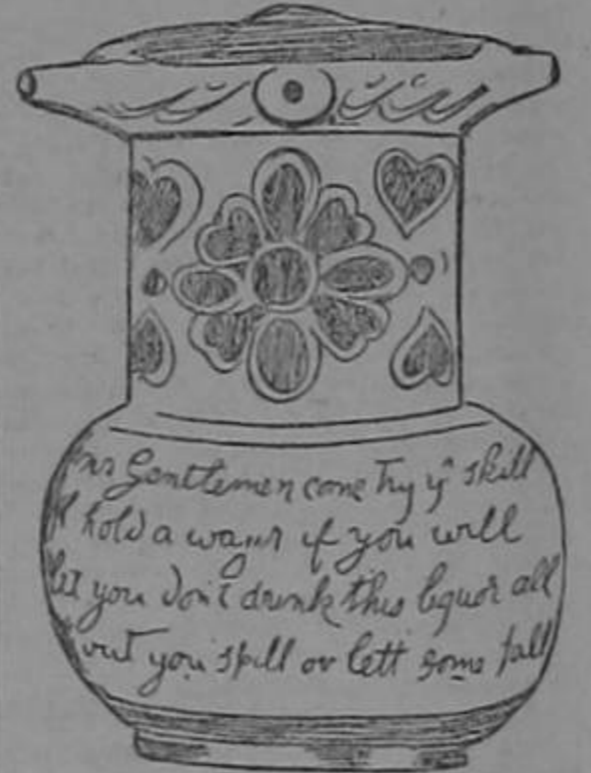 Gentlemen come Try yr skill
hold a wager if you will
you don't drink this liquor all
out you spill or lett some fall